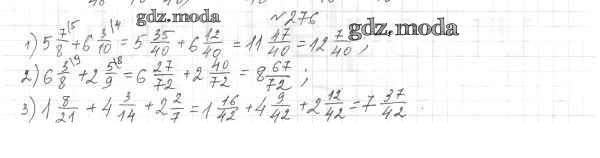 gdz.moda
№276
gdz.moda
1) 5 7/8 \5 + 6 3/10 \4 = 5 35/40 + 6 12/40 = 11 47/40 = 12 7/40 ;
2) 6 3/8 \9 + 2 5/9 \8 = 6 27/72 + 2 40/72 = 8 67/72 ;
3) 1 8/21 + 4 3/14 + 2 2/7 = 1 16/42 + 4 9/42 + 2 12/42 = 7 37/42 .